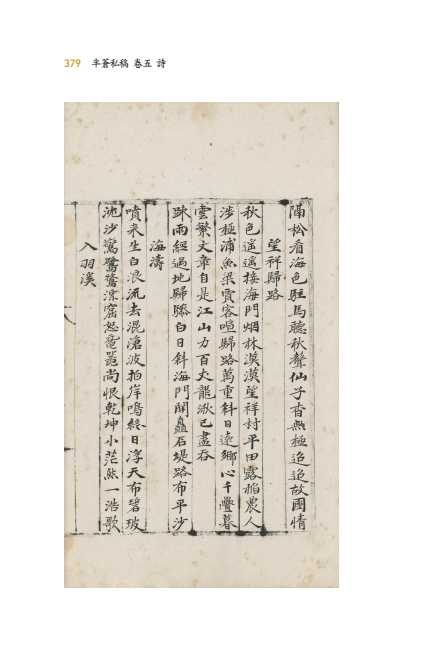 379 半蒼私稿 卷五 詩
隔松看海色駐馬聽秋聲仙子杳無極迢迢故國情
望祥歸路
秋色遙遙接海門烟林漠漠望祥村平田露稻農人
涉極浦魚梁賈客喧歸路萬重斜日遠鄉心千疊暮
雲繁文章自是江山力百丈龍湫已盡吞
踈雨經過地歸驂白日斜海門開石堤路布平沙
海濤
噴來生白浪流去混滄波拍岸鳴終日浮天布碧玻
沈沙驚鷺窟怒竜尚恨乾坤小茫然一浩歌
入羽溪